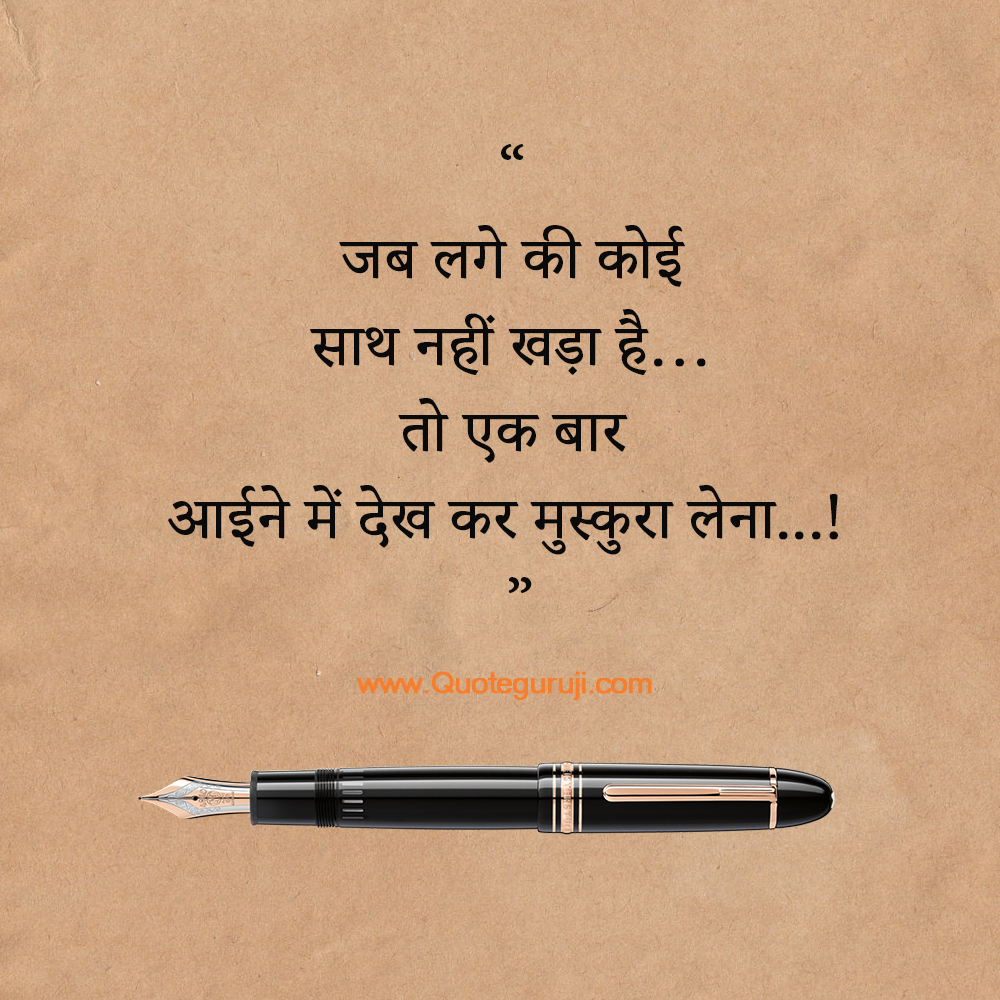 “
जब लगे की कोई
साथ नहीं खड़ा है...
तो एक बार
आईने में देख कर मुस्कुरा लेना...!
”
www.Quoteguruji.com